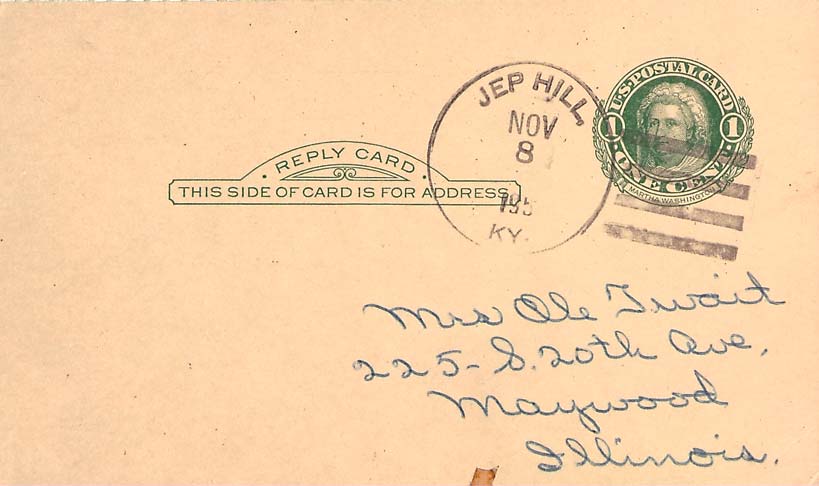 JEP HILL,
NOV
8
195
KY.
U.S. POSTAL CARD
1 1
ONE CENT
MARTHA WASHINGTON
· REPLY CARD ·
THIS SIDE OF CARD IS FOR ADDRESS.
Mrs Ole Twait
225- S. 20th Ave.
Maywood
Illinois.